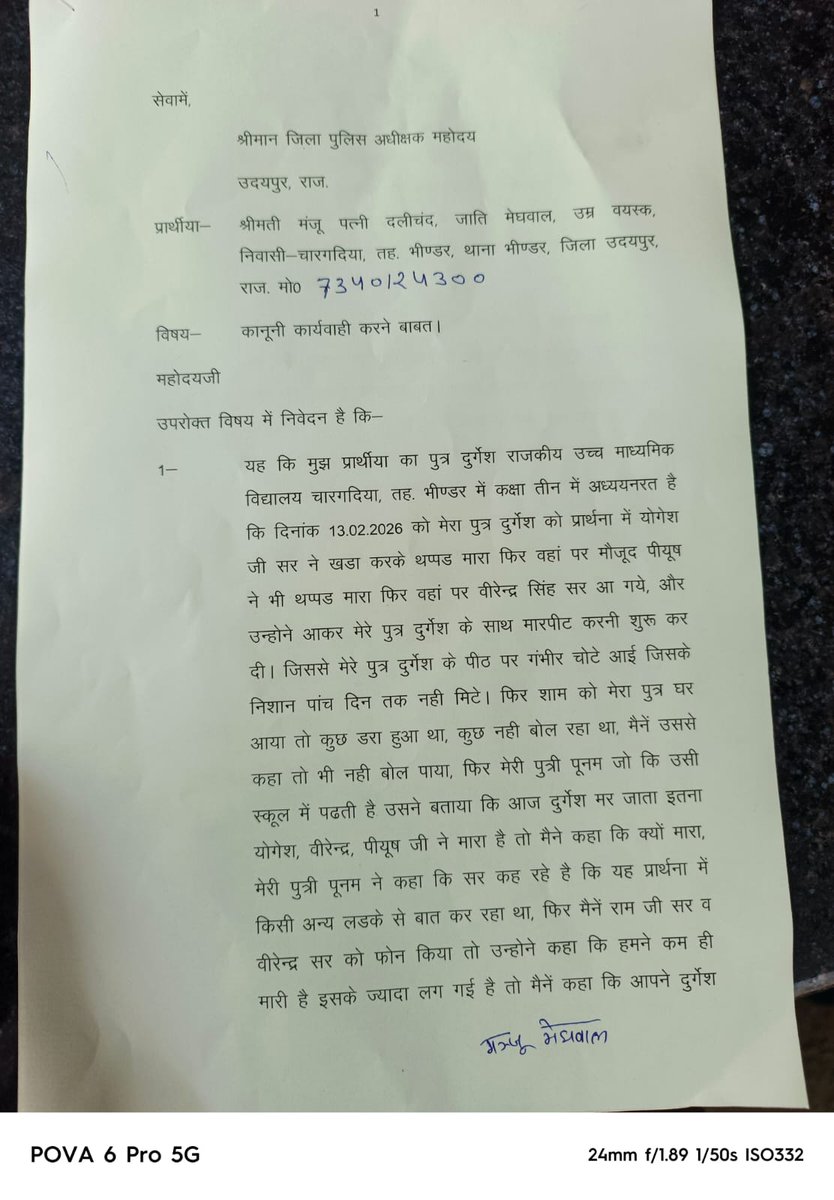 1
सेवामें,
श्रीमान जिला पुलिस अधीक्षक महोदय
उदयपुर, राज.
प्रार्थीया– श्रीमती मंजू पत्नी दलीचंद, जाति मेघवाल, उम्र वयस्क,
निवासी–चारगदिया, तह. भीण्डर, थाना भीण्डर, जिला उदयपुर,
राज. मो0 7340124300
विषय– कानूनी कार्यवाही करने बाबत।
महोदयजी
उपरोक्त विषय में निवेदन है कि–
1– यह कि मुझ प्रार्थीया का पुत्र दुर्गेश राजकीय उच्च माध्यमिक
विद्यालय चारगदिया, तह. भीण्डर में कक्षा तीन में अध्ययनरत है
कि दिनांक 13.02.2026 को मेरा पुत्र दुर्गेश को प्रार्थना में योगेश
जी सर ने खडा करके थप्पड मारा फिर वहां पर मौजूद पीयूष
ने भी थप्पड मारा फिर वहां पर वीरेन्द्र सिंह सर आ गये, और
उन्होने आकर मेरे पुत्र दुर्गेश के साथ मारपीट करनी शुरू कर
दी। जिससे मेरे पुत्र दुर्गेश के पीठ पर गंभीर चोटे आई जिसके
निशान पांच दिन तक नही मिटे। फिर शाम को मेरा पुत्र घर
आया तो कुछ डरा हुआ था, कुछ नही बोल रहा था, मैनें उससे
कहा तो भी नही बोल पाया, फिर मेरी पुत्री पूनम जो कि उसी
स्कूल में पढती है उसने बताया कि आज दुर्गेश मर जाता इतना
योगेश, वीरेन्द्र, पीयूष जी ने मारा है तो मैने कहा कि क्यों मारा,
मेरी पुत्री पूनम ने कहा कि सर कह रहे है कि यह प्रार्थना में
किसी अन्य लडके से बात कर रहा था, फिर मैनें राम जी सर व
वीरेन्द्र सर को फोन किया तो उन्होने कहा कि हमने कम ही
मारी है इसके ज्यादा लग गई है तो मैनें कहा कि आपने दुर्गेश
मञ्जू मेघवाल
POVA 6 Pro 5G
24mm f/1.89 1/50s ISO332